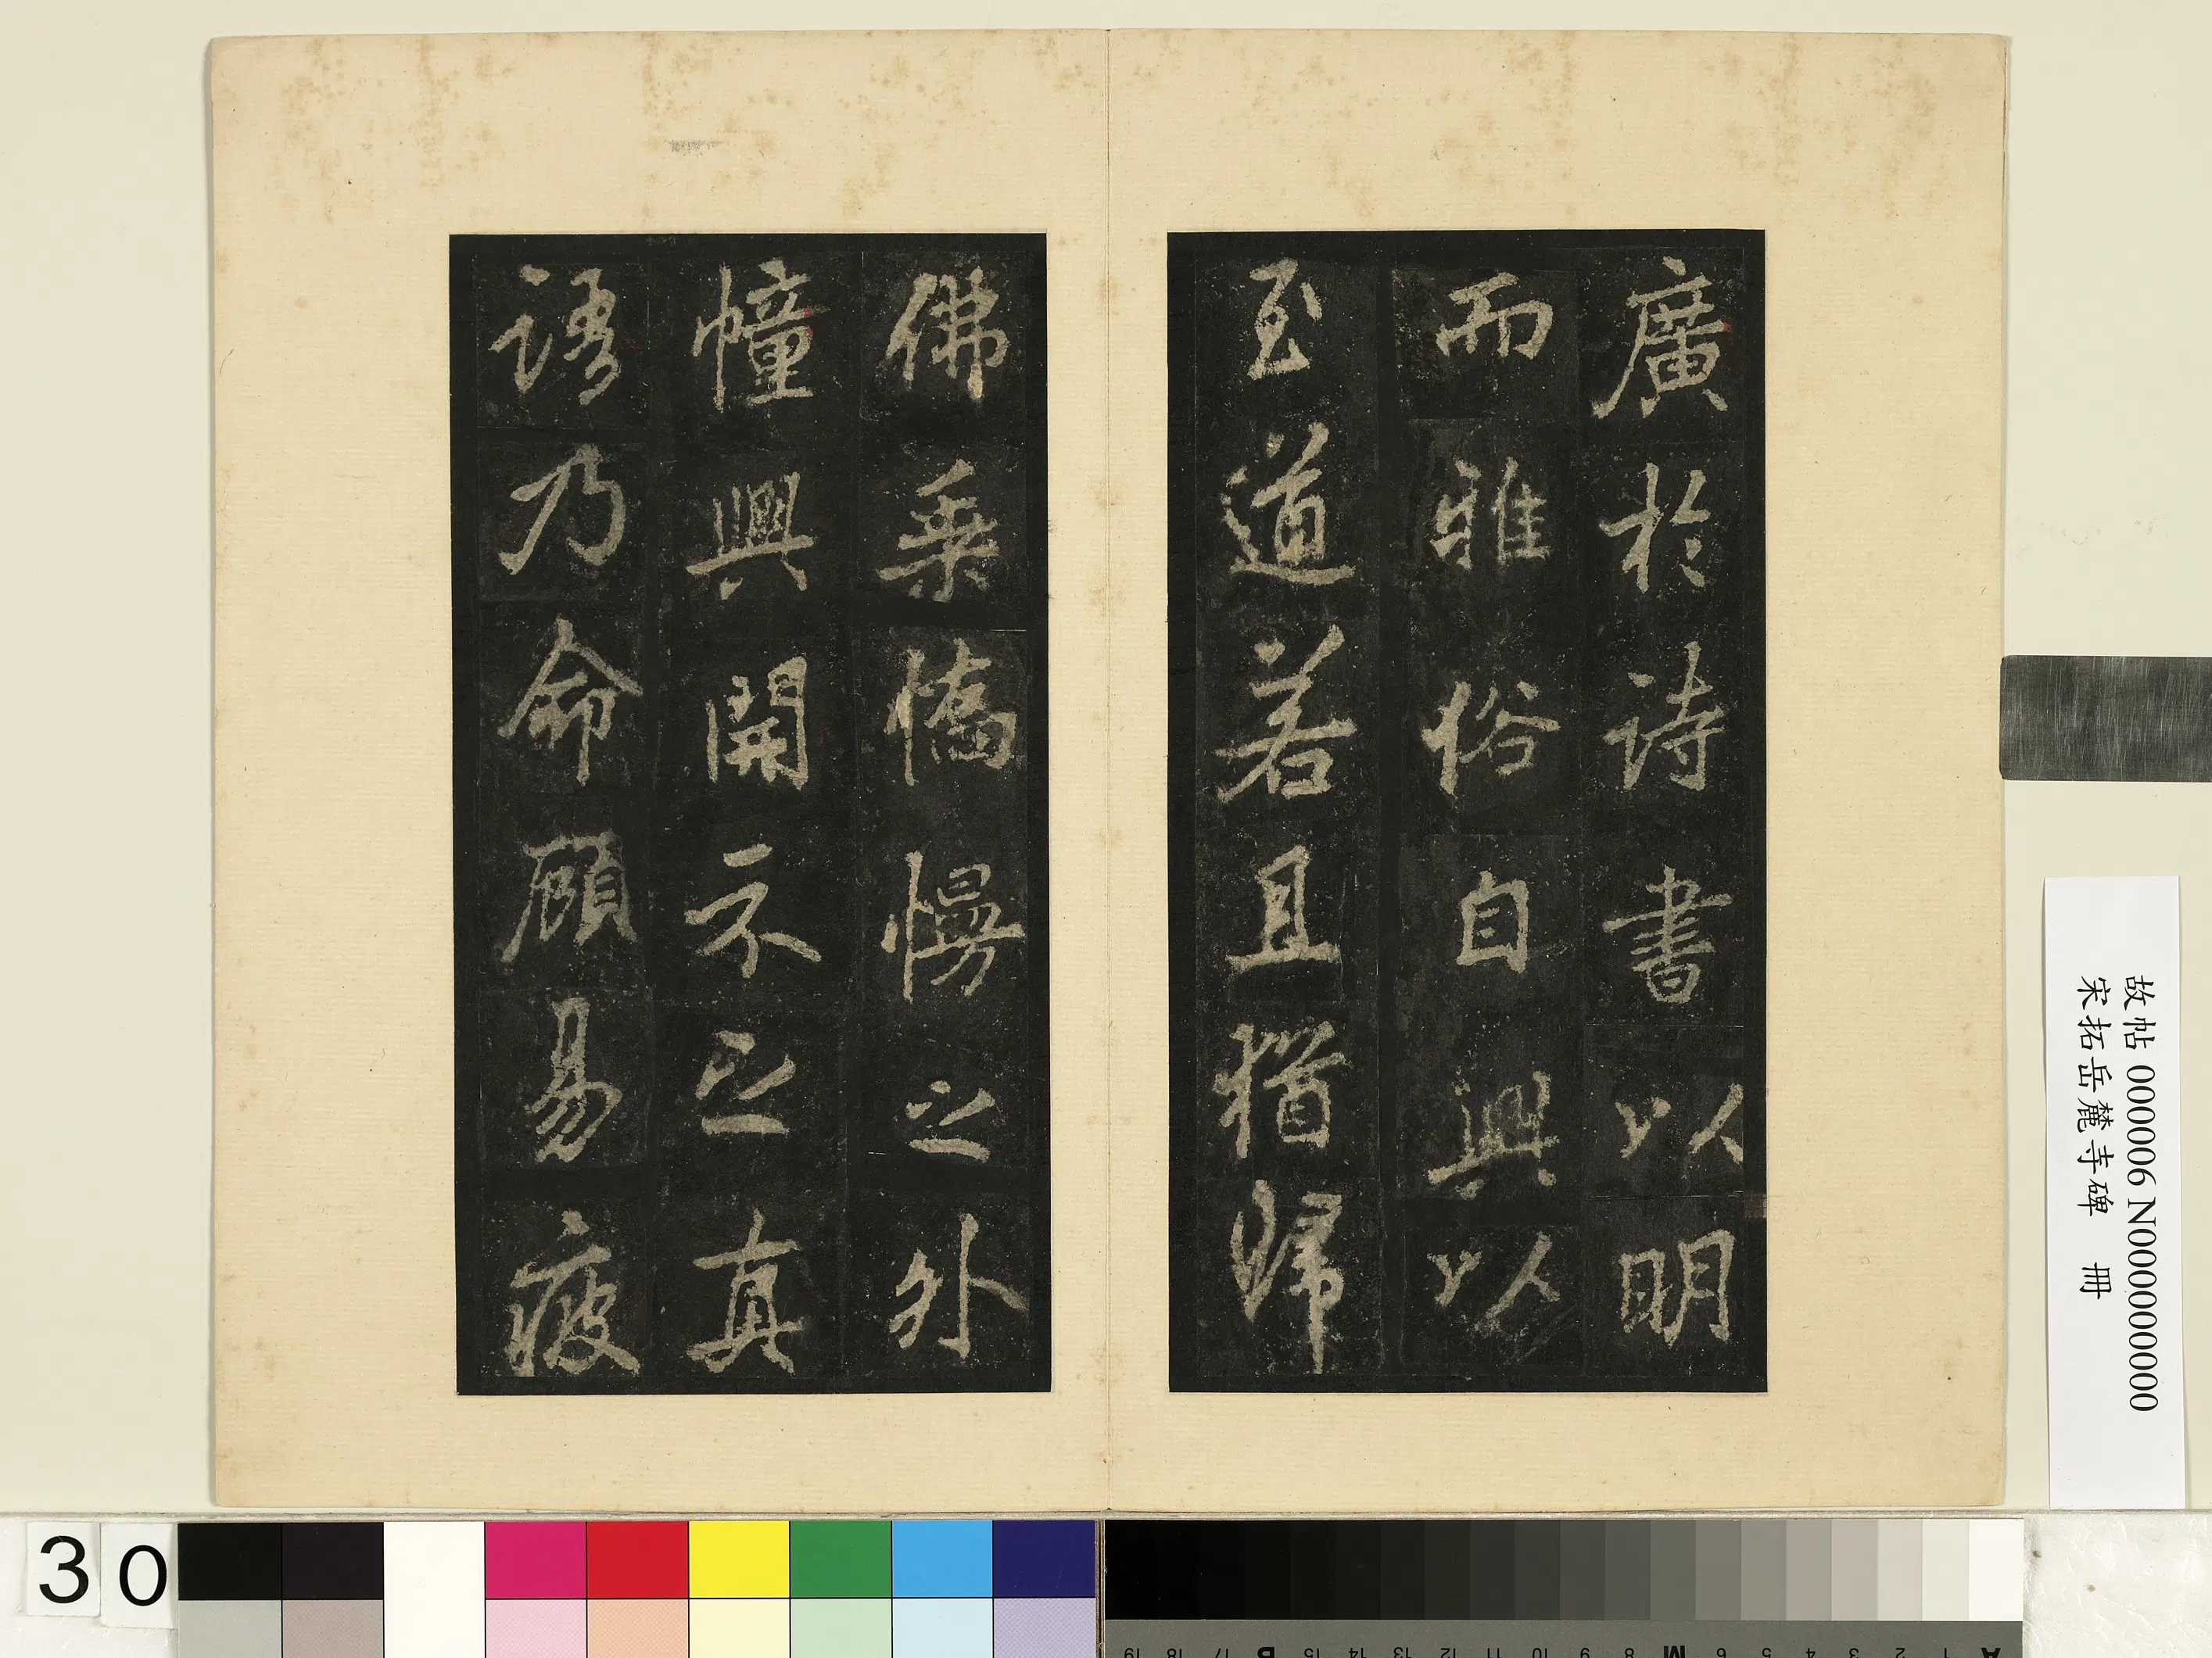 廣於詩書以明
而雅俗自興以
至道若且猶歸
佛乘憍慢之外
幢興開示之真
語乃命顧易疲
故帖 000006 N000000000
宋拓岳麓寺碑 冊
30
A 1 2 3 4 5 6 M 8 9 10 11 12 13 14 15 B 17 18 19